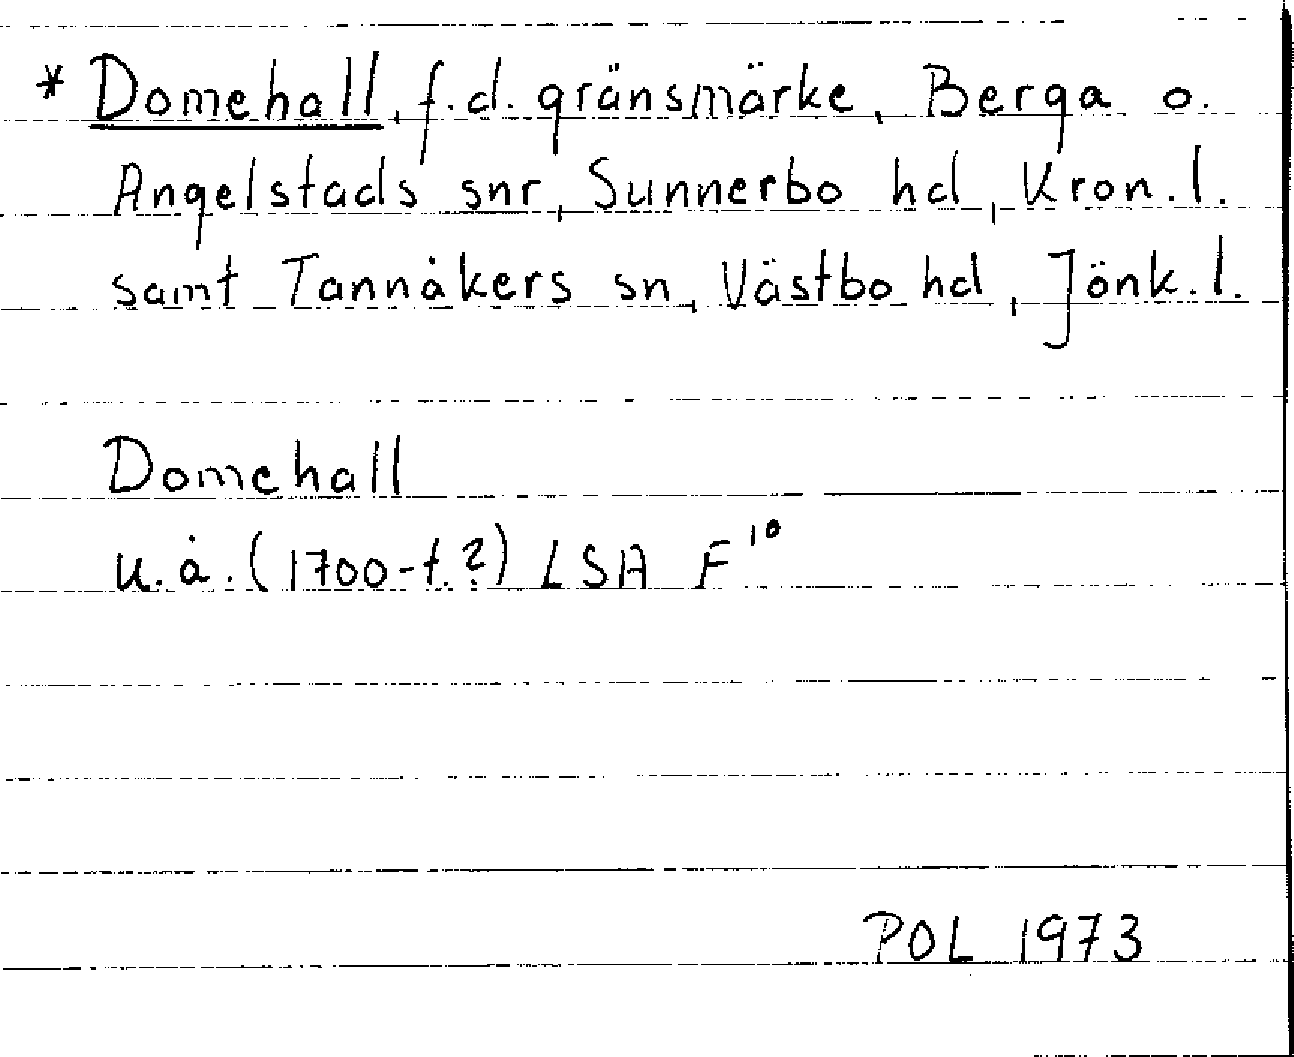 * Domehall, f.d. gränsmärke, Berga o.
Angelstads snr, Sunnerbo hd, Kron. l.
samt Tannåkers sn, Västbo hd, Jönk. l.
Domehall
u. å. (1700-t. ?) LSA F¹⁰
POL 1973